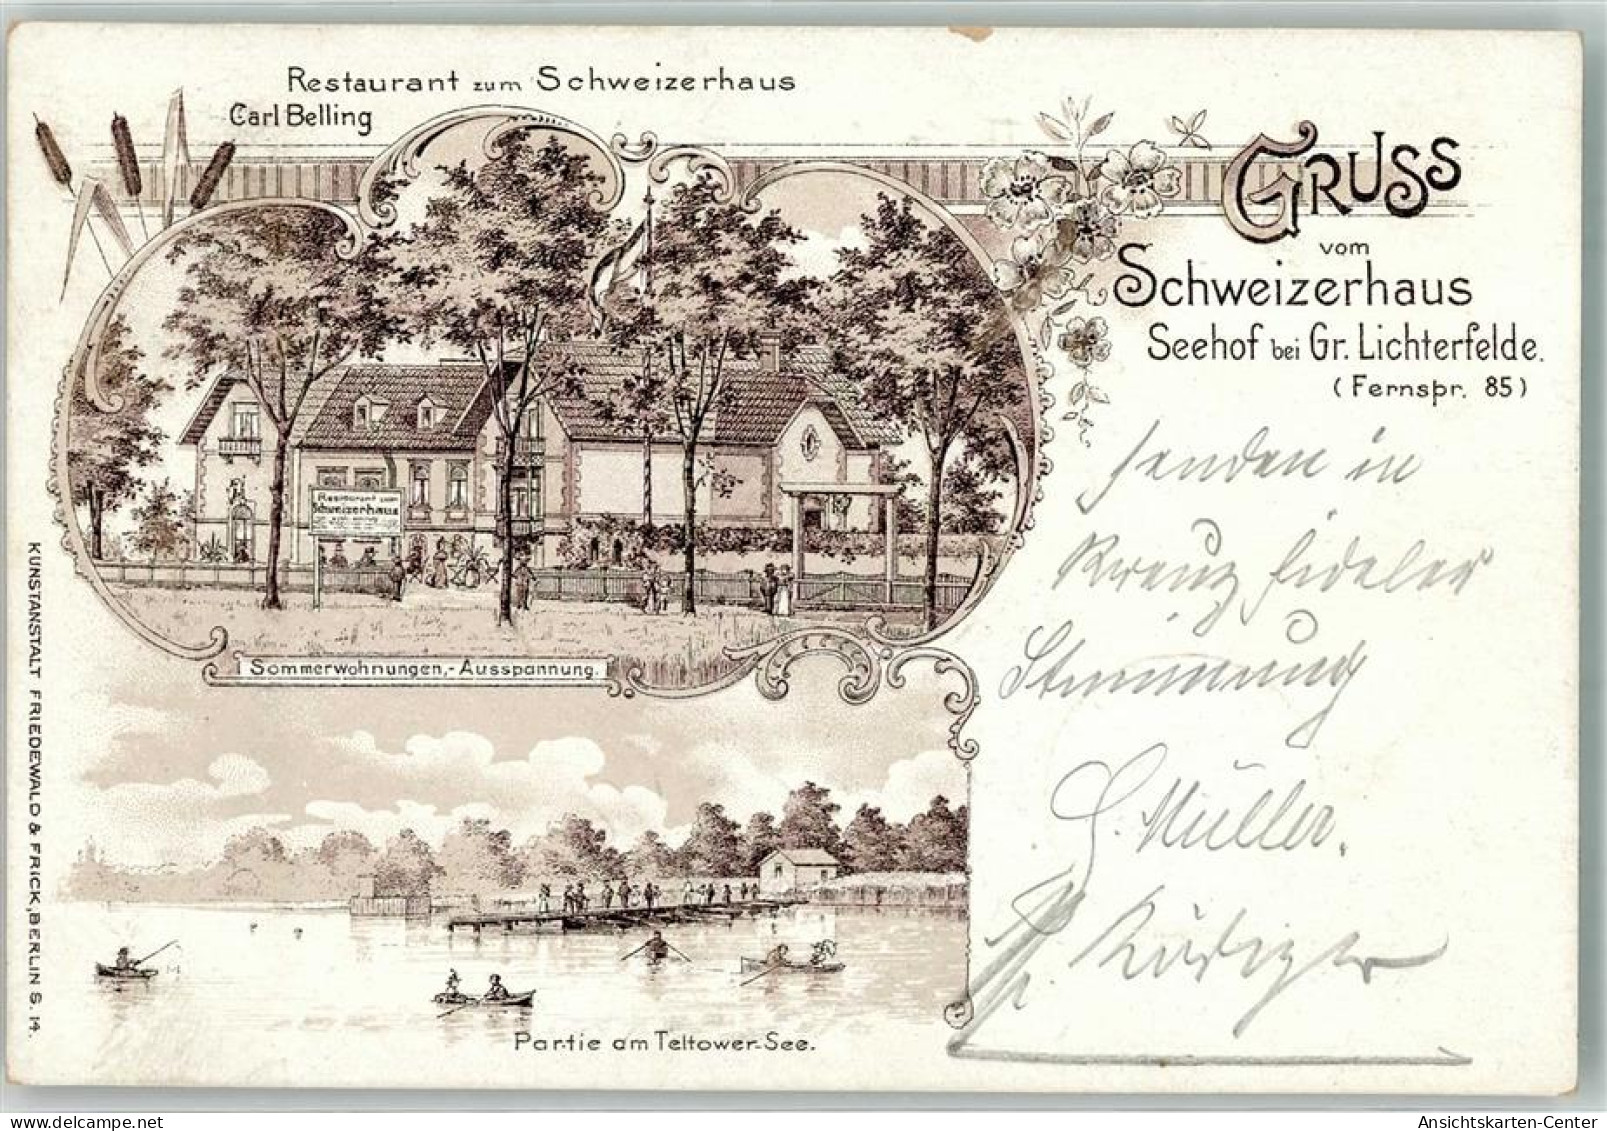 Restaurant zum Schweizerhaus
Carl Belling
Gruss
vom
Schweizerhaus
Seehof bei Gr. Lichterfelde.
(Fernspr. 85)
senden in
Kreuz fideler
Stimmung
G. Müller.
Rüdiger
Restaurant zum
Schweizerhaus
Sommerwohnungen,-Ausspannung.
Partie am Teltower-See.
KUNSTANSTALT FRIEDEWALD & FRICK, BERLIN S. 14.
Ansichtskarten-Center